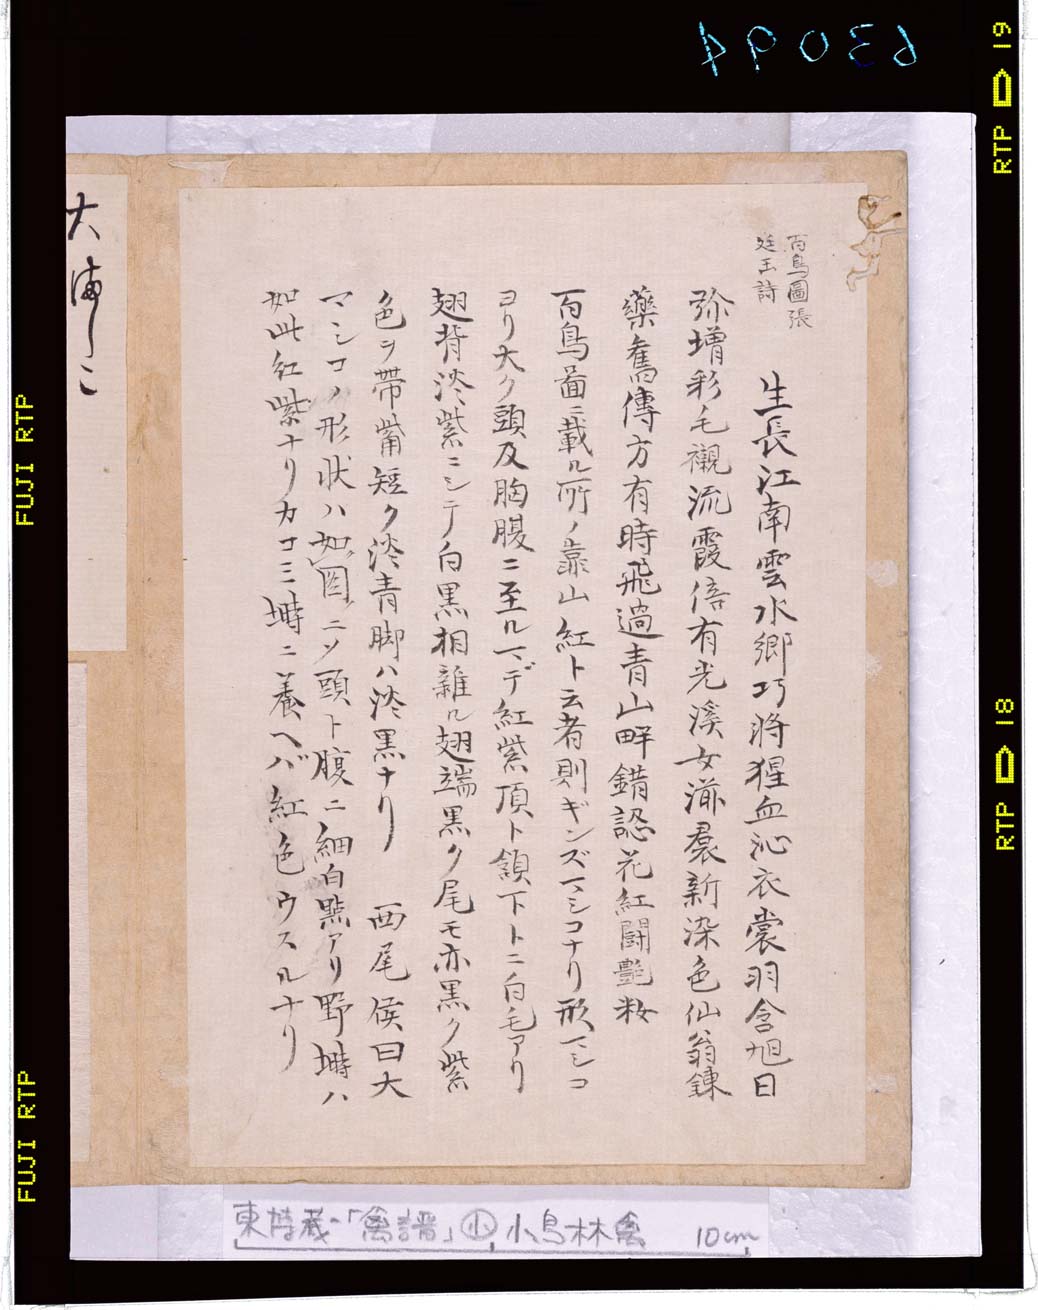 百鳥圖張
廷玉詩
生長江南雲水郷巧將猩血沁衣裳羽含旭日
弥増彩毛襯流霞倍有光溪女湔裠新染色仙翁錬
藥舊傳方有時飛過青山畔錯認花紅闘艶粧
百鳥啚ニ載ル所ノ靠山紅ト云者則ギンズマシコナリ形マシコ
ヨリ大ク頭及胸腹ニ至ルマデ紅紫頂ト頷下トニ白毛アリ
翅背淡紫ニシテ白黒相雜ル翅端黒ク尾モ亦黒ク紫
色ヲ帶觜短ク淡青脚ハ淡黒ナリ 西尾侯曰大
マシコノ形状ハ如図ニソ頭ト腹ニ細白点アリ野塒ハ
如此紅紫ナリカコミ塒ニ養ヘバ紅色ウスルナリ
大ましこ
東博蔵「禽譜」小 小鳥林禽 10cm
63094
RTP 19
RTP 18
FUJI RTP
FUJI RTP